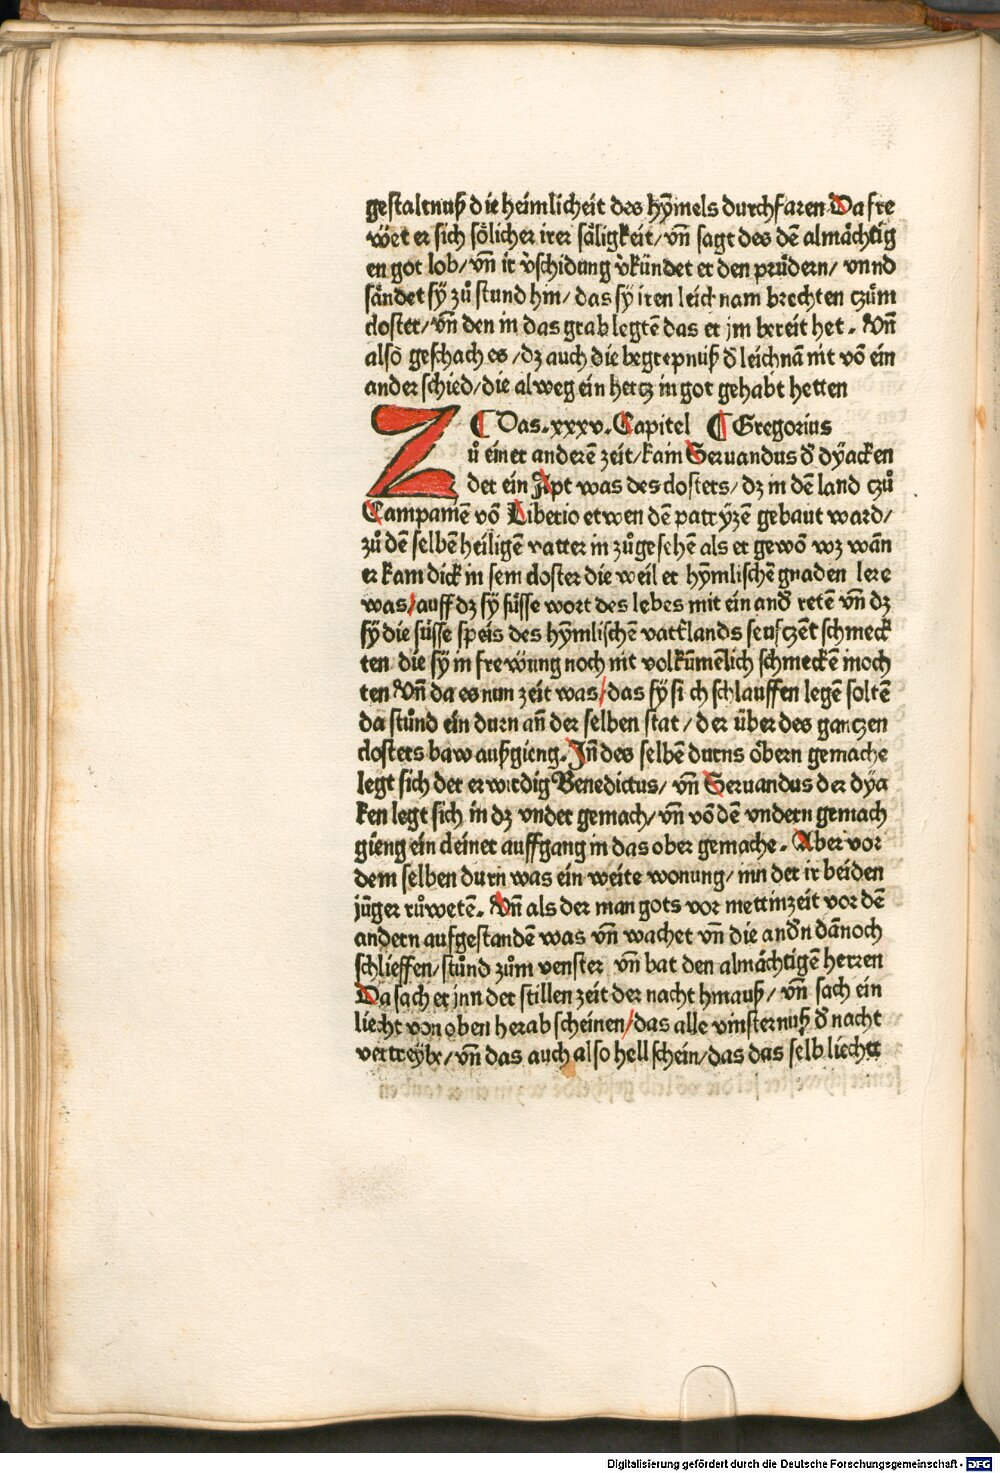 gestaltnuß die heimlicheit des hȳmels durchfaren Da fre
wet er sich sölicher irer säligkeit/ vn̄ sagt des dē almächtig
en got lob/ vn̄ ir v̉schidung v̉kündet er den prüdern/ vnnd
sändet sÿ zů stund hin/ das sÿ iren leichnam brechten czům
closter/ vn̄ den in das grab legtē das er jm bereit het. Vn̄
also geschach es /dz auch die begrepnuß d̉ leichnā nit vō ein
ander schied/ die alweg ein hertz in got gehabt hetten
¶ Das .xxxv. Capitel ¶ Gregorius
Zů einer anderē zeit/ kam Seruandus d̉ dyäcken
der ein Apt was des closters/ dz in dē land czů
Campaniē vō Liberio etwen dē patryzē gebaut ward/
zů dē selbē heiligē vatter in zůgesehē als er gewō wz wān
er kam dick in sein closter die weil er hȳmlischē gnaden lere
was/ auff dz sÿ süsse wort des lebēs mit einand̉ retē vn̄ dz
sÿ die süsse speis des hȳmlischē vatt̉lands seufczēt schmeck
ten die sÿ in frewung noch nit volkūmēlich schmeckē moch
ten Vn̄ da es nun zeit was/ das sÿ sich schlauffen legē soltē
da stůnd ein durn an̄ der selben stat/ der über des gantzen
closters baw außgieng. Jn̄ des selbē durns öbern gemache
legt sich der erwirdig Benedictus/ vn̄ Seruandus der dya
ken legt sich in dz vnder gemach/ vn̄ vō dē vndern gemach
gieng ein cleiner auffgang in das ober gemache. Aber vor
dem selben durn was ein weite wonung/ inn der ir beiden
jüger růwetē. Vn̄ als der man gots vor mettinzeit vor dē
andern aufgestandē was vn̄ wachet vn̄ die and̉n dānoch
schlieffen/ stůnd zům venster vn̄ bat den almächtigē herren
Da sach er inn der stillen zeit der nacht hinauß/ vn̄ sach ein
liecht von oben herab scheinen/ das alle vinsternuß d̉ nacht
vertreÿbt/ vn̄ das auch also hell schein/ das das selb liecht
Digitalisierung gefördert durch die Deutsche Forschungsgemeinschaft - DFG